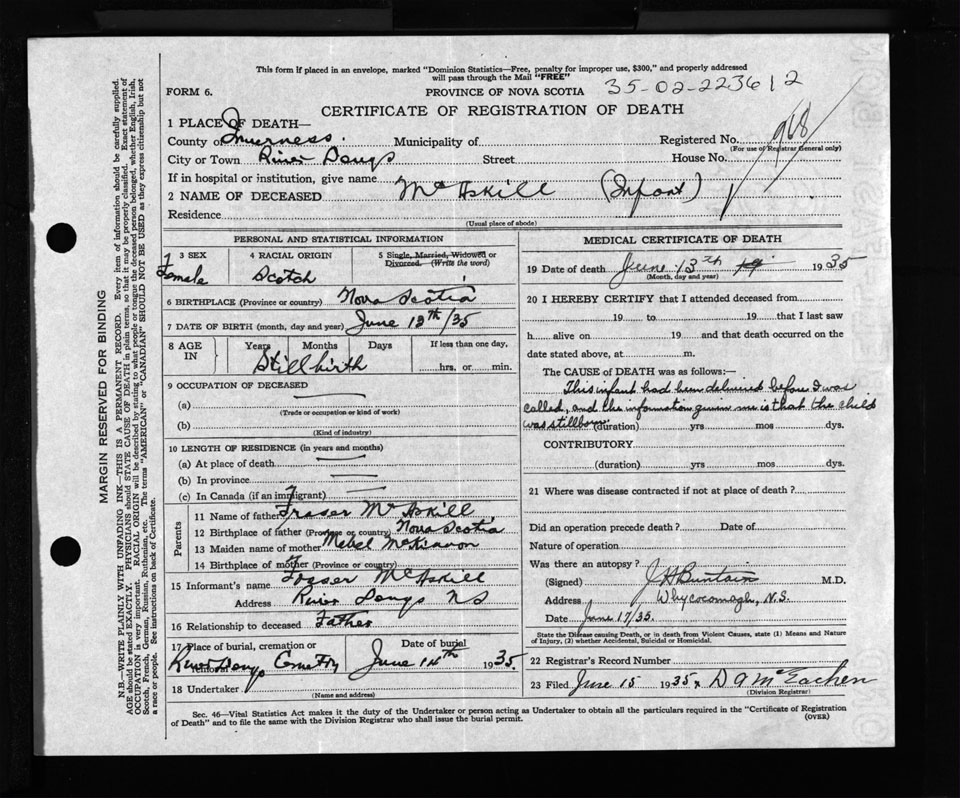 This form if placed in an envelope, marked "Dominion Statistics—Free, penalty for improper use, $300," and properly addressed
will pass through the Mail "FREE"
FORM 6. PROVINCE OF NOVA SCOTIA 35-02-223612
CERTIFICATE OF REGISTRATION OF DEATH
1 PLACE OF DEATH—
County of Inverness. Municipality of Registered No. 968
(For use of Registrar General only)
City or Town River Denys Street House No.
If in hospital or institution, give name
2 NAME OF DECEASED McAskill (Infant)
Residence
(Usual place of abode)
PERSONAL AND STATISTICAL INFORMATION
3 SEX 4 RACIAL ORIGIN 5 Single, Married, Widowed or
Divorced. (Write the word)
Female Scotch
6 BIRTHPLACE (Province or country) Nova Scotia
7 DATE OF BIRTH (month, day and year) June 13th/35
8 AGE IN Years Months Days If less than one day,
Stillbirth hrs. or min.
9 OCCUPATION OF DECEASED
(a)
(Trade or occupation or kind of work)
(b)
(Kind of industry)
10 LENGTH OF RESIDENCE (in years and months)
(a) At place of death
(b) In province
(c) In Canada (if an immigrant)
Parents
11 Name of father Fraser McAskill
12 Birthplace of father (Province or country) Nova Scotia
13 Maiden name of mother Mabel McKinnon
14 Birthplace of mother (Province or country)
15 Informant's name Fraser McAskill
Address River Denys NS
16 Relationship to deceased Father
17 Place of burial, cremation or removal Date of burial
River Denys Cemetry June 14th 1935.
18 Undertaker
(Name and address)
MEDICAL CERTIFICATE OF DEATH
19 Date of death June 13th 1935
(Month, day and year)
20 I HEREBY CERTIFY that I attended deceased from
19 to 19 that I last saw
h alive on 19 and that death occurred on the
date stated above, at m.
The CAUSE of DEATH was as follows:—
This infant had been delivered before I was
called, and the information given me is that the child
was stillborn. (duration) yrs mos dys.
CONTRIBUTORY
(duration) yrs mos dys.
21 Where was disease contracted if not at place of death?
Did an operation precede death? Date of
Nature of operation
Was there an autopsy?
(Signed) J H Buntain M.D.
Address Whycocomagh, N.S.
Date June 17/35.
State the Disease causing Death, or in death from Violent Causes, state (1) Means and Nature
of Injury, (2) whether Accidental, Suicidal or Homicidal.
22 Registrar's Record Number
23 Filed June 15 1935 D A McEachen
(Division Registrar)
Sec. 46—Vital Statistics Act makes it the duty of the Undertaker or person acting as Undertaker to obtain all the particulars required in the "Certificate of Registration
of Death" and to file the same with the Division Registrar who shall issue the burial permit. (OVER)
MARGIN RESERVED FOR BINDING
N.B.—WRITE PLAINLY WITH UNFADING INK—THIS IS A PERMANENT RECORD. Every item of information should be carefully supplied.
AGE should be stated EXACTLY. PHYSICIANS should STATE CAUSE OF DEATH in plain terms, so that it may be properly classified. Exact statement of
OCCUPATION is very important. RACIAL ORIGIN will be described by stating to what people or tongue the deceased person belonged, whether English, Irish,
Scotch, French, German, Russian, Ruthenian, etc. The terms "AMERICAN" or "CANADIAN" SHOULD NOT BE USED as they express citizenship but not
a race or people. See instructions on back of Certificate.